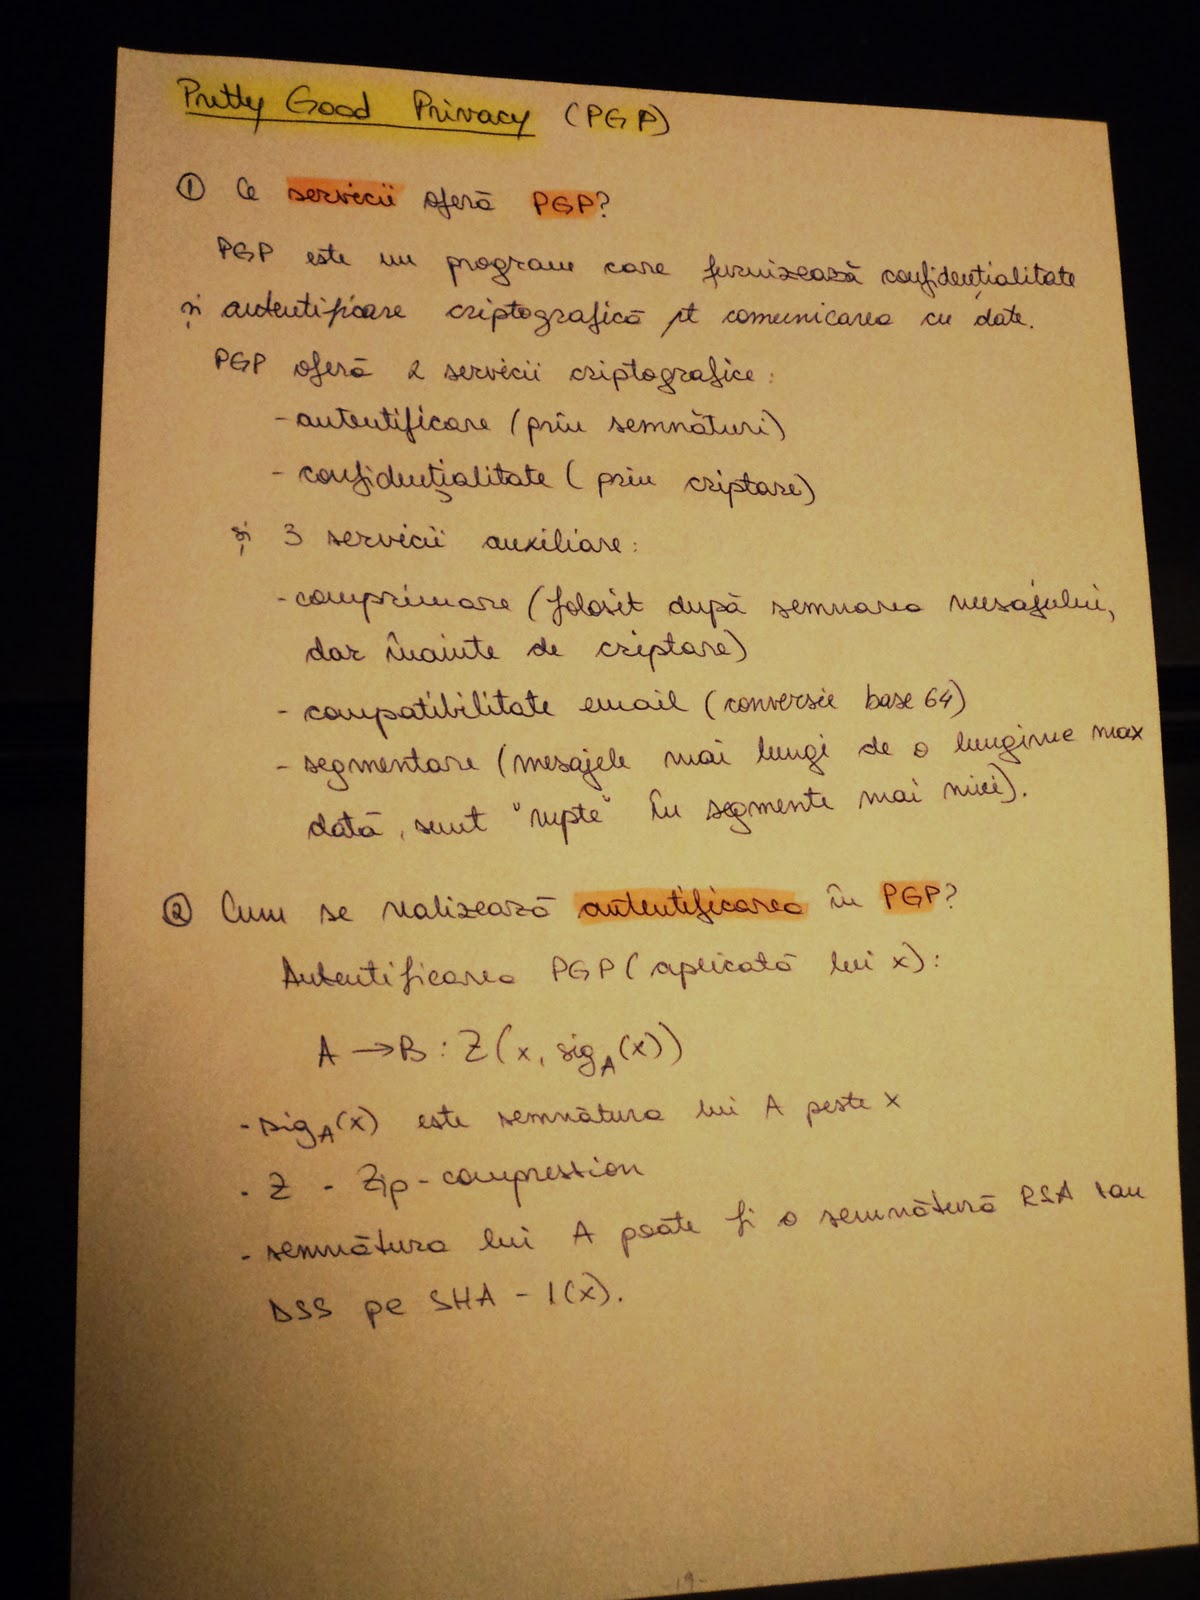 Pretty Good Privacy (PGP)
① Ce servicii oferă PGP?
PGP este un program care furnizează confidențialitate
și autentificare criptografică pt comunicarea cu date.
PGP oferă 2 servicii criptografice:
- autentificare (prin semnături)
- confidențialitate (prin criptare)
și 3 servicii auxiliare:
- comprimare (folosit după semnarea mesajului,
dar înainte de criptare)
- compatibilitate email (conversie base 64)
- segmentare (mesajele mai lungi de o lungime max
dată, sunt "rupte" în segmente mai mici).
② Cum se realizează autentificarea în PGP?
Autentificarea PGP (aplicată lui x):
A → B : Z(x, sig_A(x))
- sig_A(x) este semnătura lui A peste x
- Z - Zip-compression
- semnătura lui A poate fi o semnătură RSA sau
DSS pe SHA-1(x).
-19-